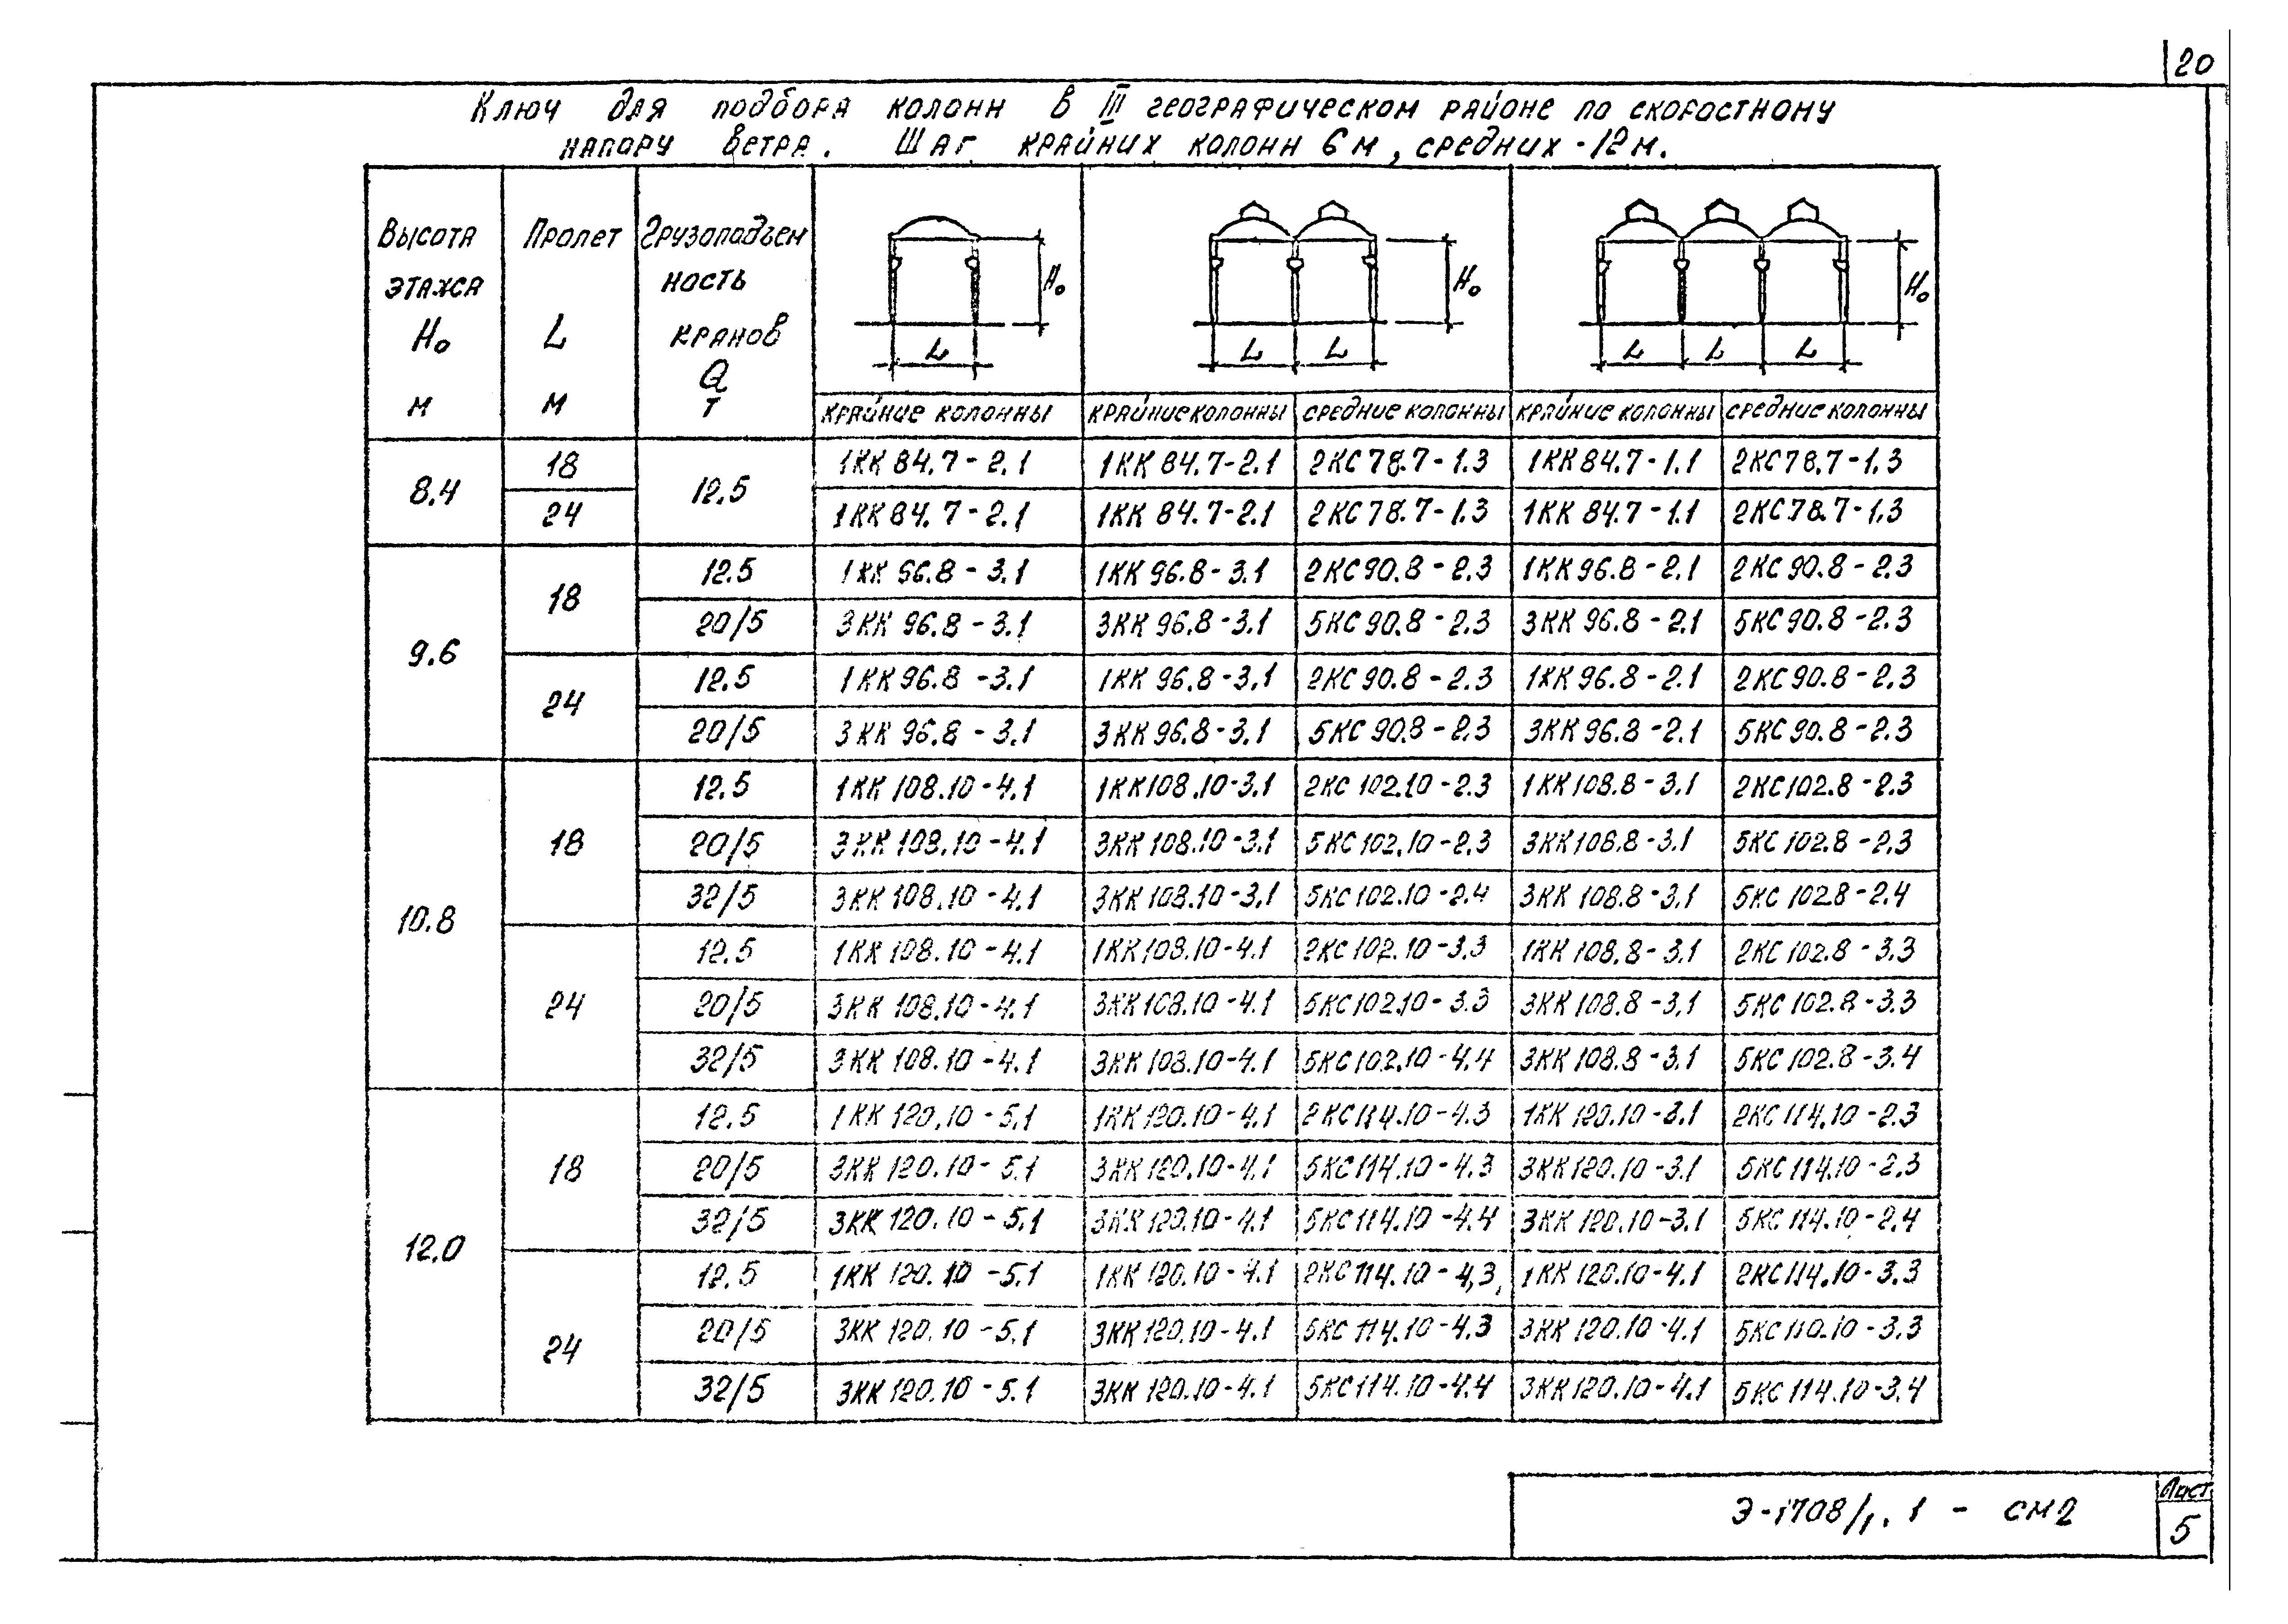 20
Ключ для подбора колонн в III географическом районе по скоростному
напору ветра. Шаг крайних колонн 6 м, средних - 12 м.
Высота этажа Н₀ м
Пролет L м
Грузоподъем ность кранов Q т
Н₀ L
Н₀ L L
Н₀ L L L
крайние колонны крайние колонны средние колонны крайние колонны средние колонны
8.4 18 12.5 1КК 84.7-2.1 1КК 84.7-2.1 2КС 78.7-1.3 1КК 84.7-1.1 2КС 78.7-1.3
24 1КК 84.7-2.1 1КК 84.7-2.1 2КС 78.7-1.3 1КК 84.7-1.1 2КС 78.7-1.3
9.6 18 12.5 1КК 96.8-3.1 1КК 96.8-3.1 2КС 90.8-2.3 1КК 96.8-2.1 2КС 90.8-2.3
20/5 3КК 96.8-3.1 3КК 96.8-3.1 5КС 90.8-2.3 3КК 96.8-2.1 5КС 90.8-2.3
24 12.5 1КК 96.8-3.1 1КК 96.8-3.1 2КС 90.8-2.3 1КК 96.8-2.1 2КС 90.8-2.3
20/5 3КК 96.8-3.1 3КК 96.8-3.1 5КС 90.8-2.3 3КК 96.8-2.1 5КС 90.8-2.3
10.8 18 12.5 1КК 108.10-4.1 1КК 108.10-3.1 2КС 102.10-2.3 1КК 108.8-3.1 2КС 102.8-2.3
20/5 3КК 108.10-4.1 3КК 108.10-3.1 5КС 102.10-2.3 3КК 108.8-3.1 5КС 102.8-2.3
32/5 3КК 108.10-4.1 3КК 108.10-3.1 5КС 102.10-2.4 3КК 108.8-3.1 5КС 102.8-2.4
24 12.5 1КК 108.10-4.1 1КК 108.10-4.1 2КС 102.10-3.3 1КК 108.8-3.1 2КС 102.8-3.3
20/5 3КК 108.10-4.1 3КК 108.10-4.1 5КС 102.10-3.3 3КК 108.8-3.1 5КС 102.8-3.3
32/5 3КК 108.10-4.1 3КК 108.10-4.1 5КС 102.10-4.4 3КК 108.8-3.1 5КС 102.8-3.4
12.0 18 12.5 1КК 120.10-5.1 1КК 120.10-4.1 2КС 114.10-4.3 1КК 120.10-3.1 2КС 114.10-2.3
20/5 3КК 120.10-5.1 3КК 120.10-4.1 5КС 114.10-4.3 3КК 120.10-3.1 5КС 114.10-2.3
32/5 3КК 120.10-5.1 3КК 120.10-4.1 5КС 114.10-4.4 3КК 120.10-3.1 5КС 114.10-2.4
24 12.5 1КК 120.10-5.1 1КК 120.10-4.1 2КС 114.10-4,3 1КК 120.10-4.1 2КС 114.10-3.3
20/5 3КК 120.10-5.1 3КК 120.10-4.1 5КС 114.10-4.3 3КК 120.10-4.1 5КС 110.10-3.3
32/5 3КК 120.10-5.1 3КК 120.10-4.1 5КС 114.10-4.4 3КК 120.10-4.1 5КС 114.10-3.4
Э-1708/1.1 - СМ2
Лист
5